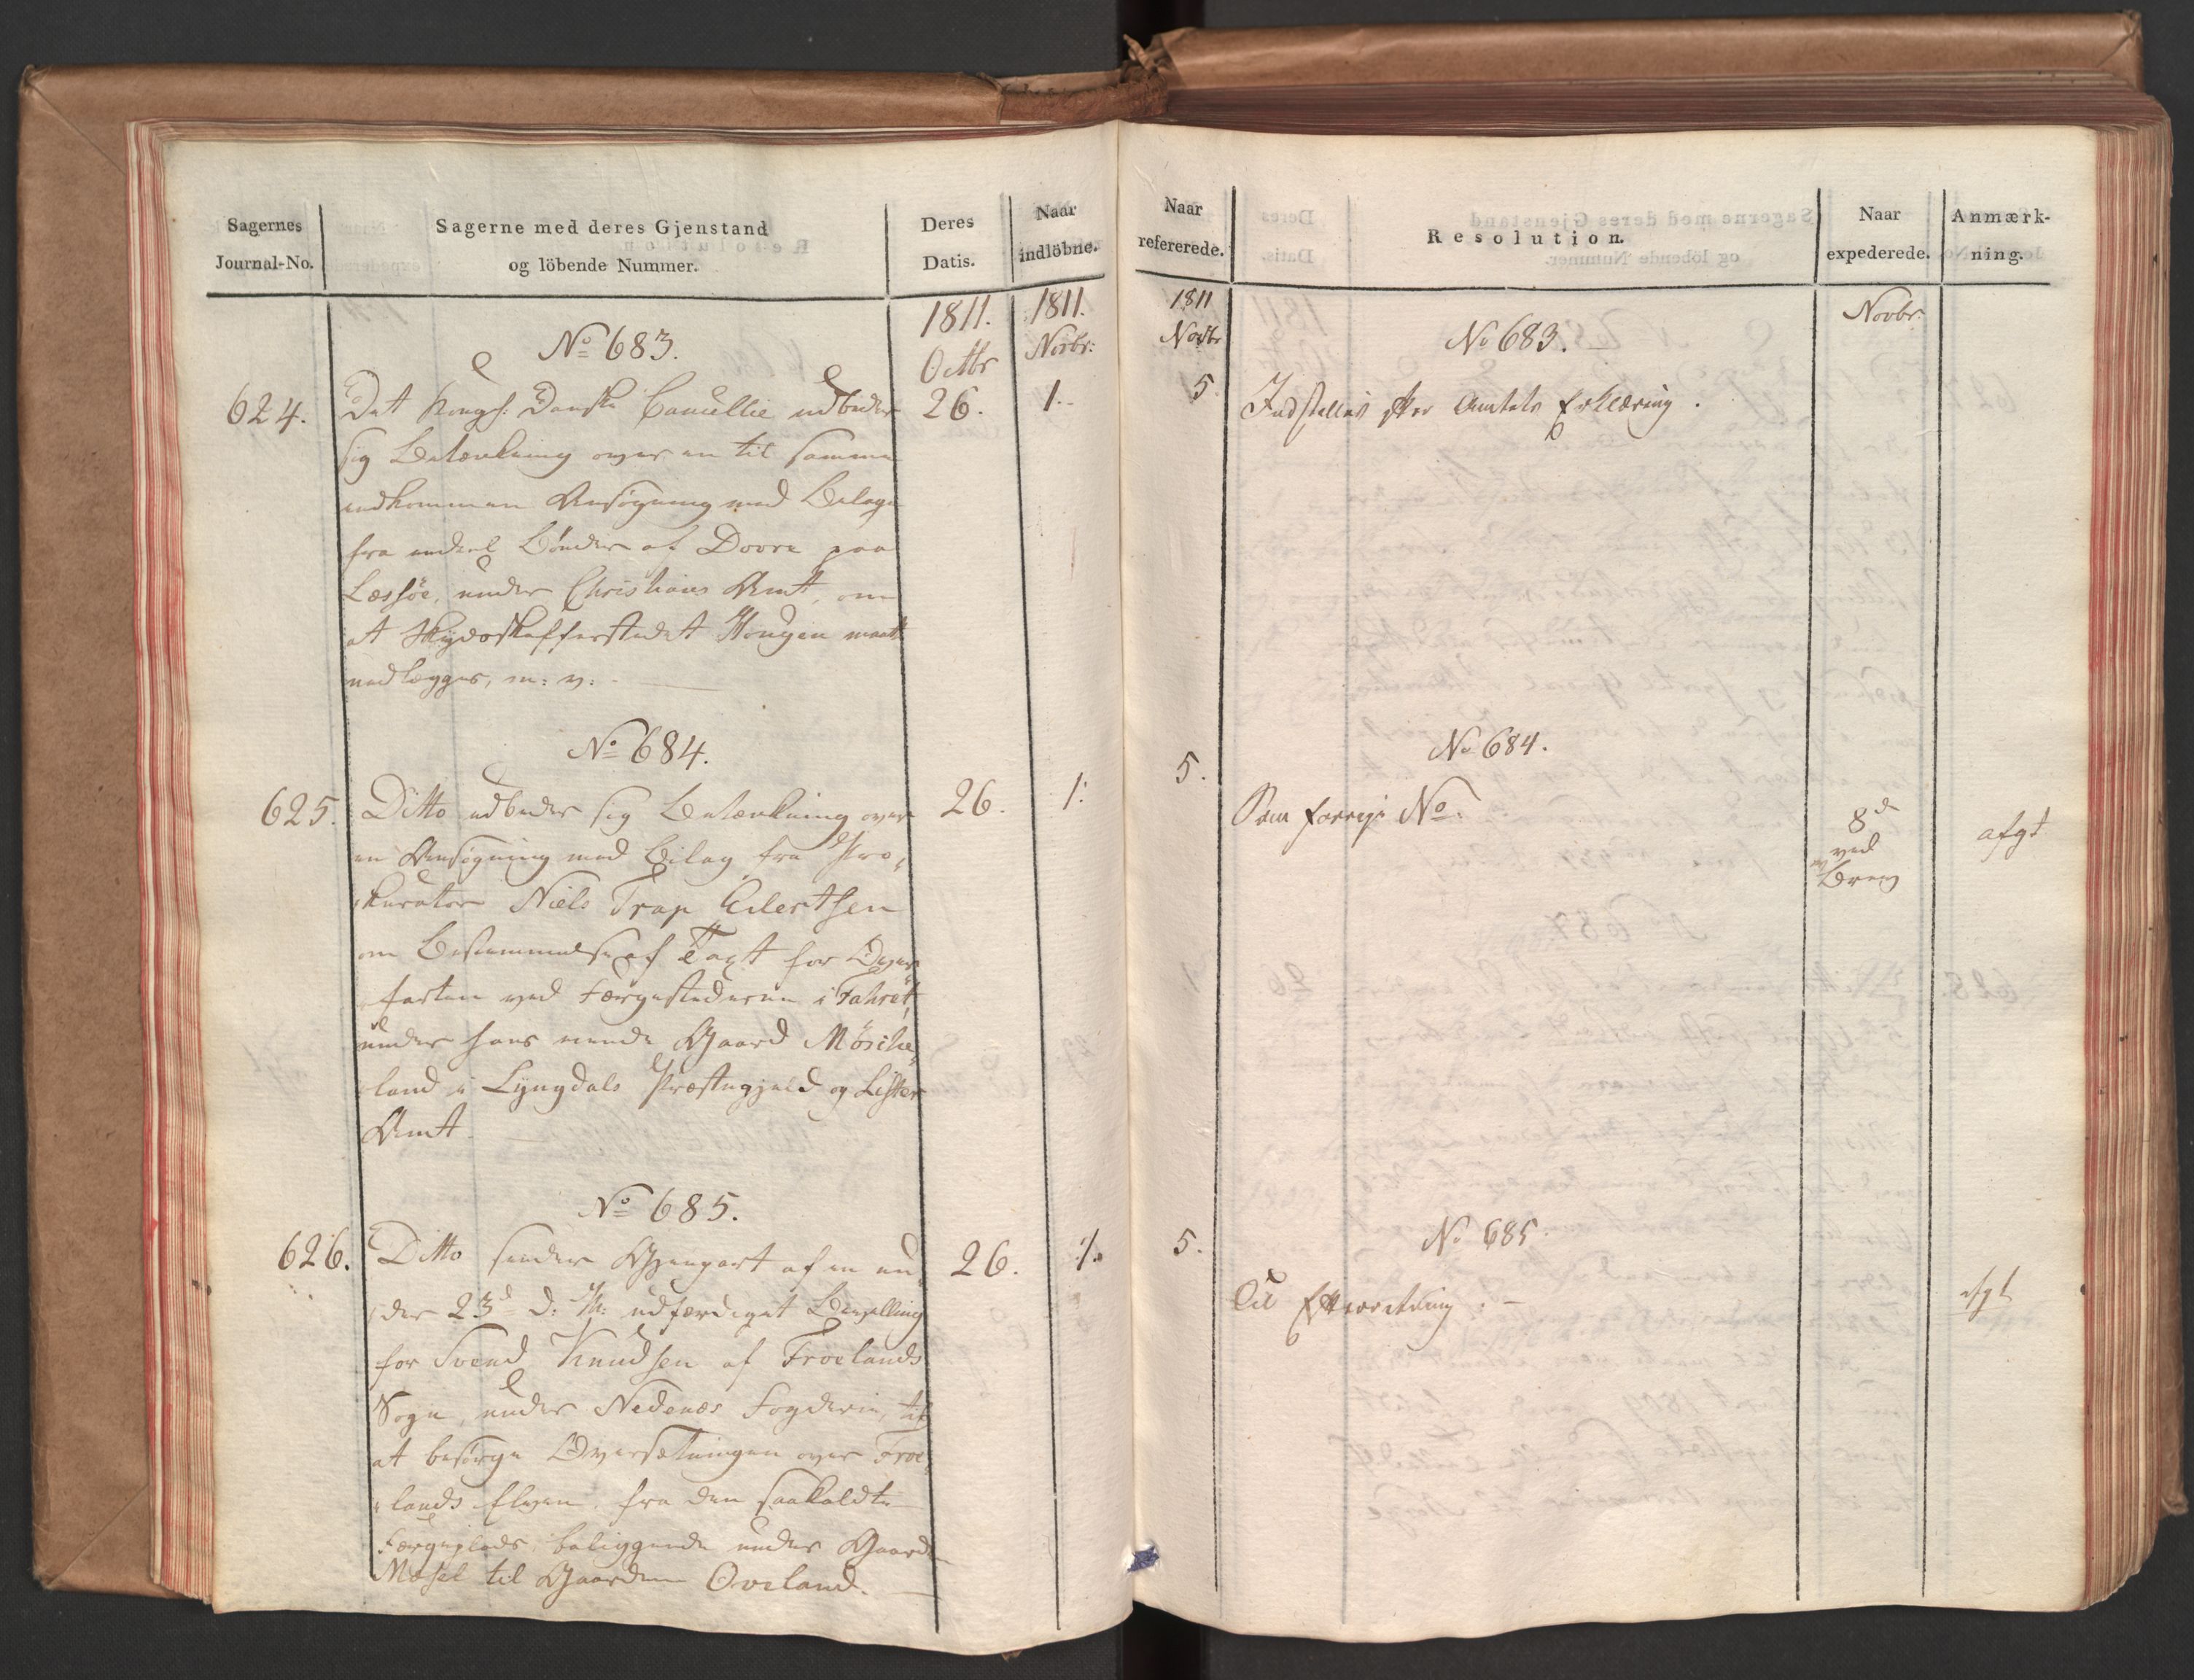 Sagernes
Journal-No.
Sagerne med deres Gjenstand
og löbende Nummer.
Deres
Datis.
Naar
indlöbne.
1811.
Octbr
1811.
Novbr:
No 683.
624.
Det kongl: Danske Cancellie udbeder
26.
1.
sig Betænkning over en til samme
indkommen Ansøgning med Bilage
fra endeel Bønder af Dovre paa
Lessöe, under Christians Amt, om
at Skydsskafferstedet Hougen maatte
nedlægges, m: v: -
No 684.
625.
Ditto udbeder sig Betænkning over
26.
1:
en Ansøgning med Bilag fra Pro,
kurator Niels Trap Eilertsen
om Bestemmelse af Taxt for Over
farten ved Færgestederne i Fahret,
under hans eiende Gaard Mösche,
land i Lyngdals Præstegjeld og Lister
Amt.
No 685.
626.
Ditto sender Gjenpart af en un,
26.
1.
der 23d d: M: udfærdiget Bevilling
for Svend Knudsen af Froelands
Sogn, under Nedenæs Fogderie, til
at besørge Oversætningen over Froe,
lands Elven fra den saakaldte
Færgeplads, beliggende under Gaarden
Mæsel til Gaarden Oveland.
Naar
refererede.
Resolution.
Naar
expederede.
Anmærk-
ning.
1811
Novbr
Novbr.
No 683.
5
Indstilles efter Amtets Erklæring.
No 684.
5.
Som forrige No.
8d
ved
Brev
afgt
No 685.
5.
Til Efterretning. -
afgt